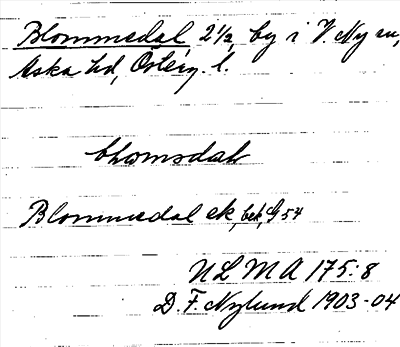 Blommedal 2 1/2, by i V. Ny sn,
Aska hd, Österg. l.
blωmsdαλ
Blommedal ek, bek, G 54
NLMA 175:8
D. F. Nylund 1903-04